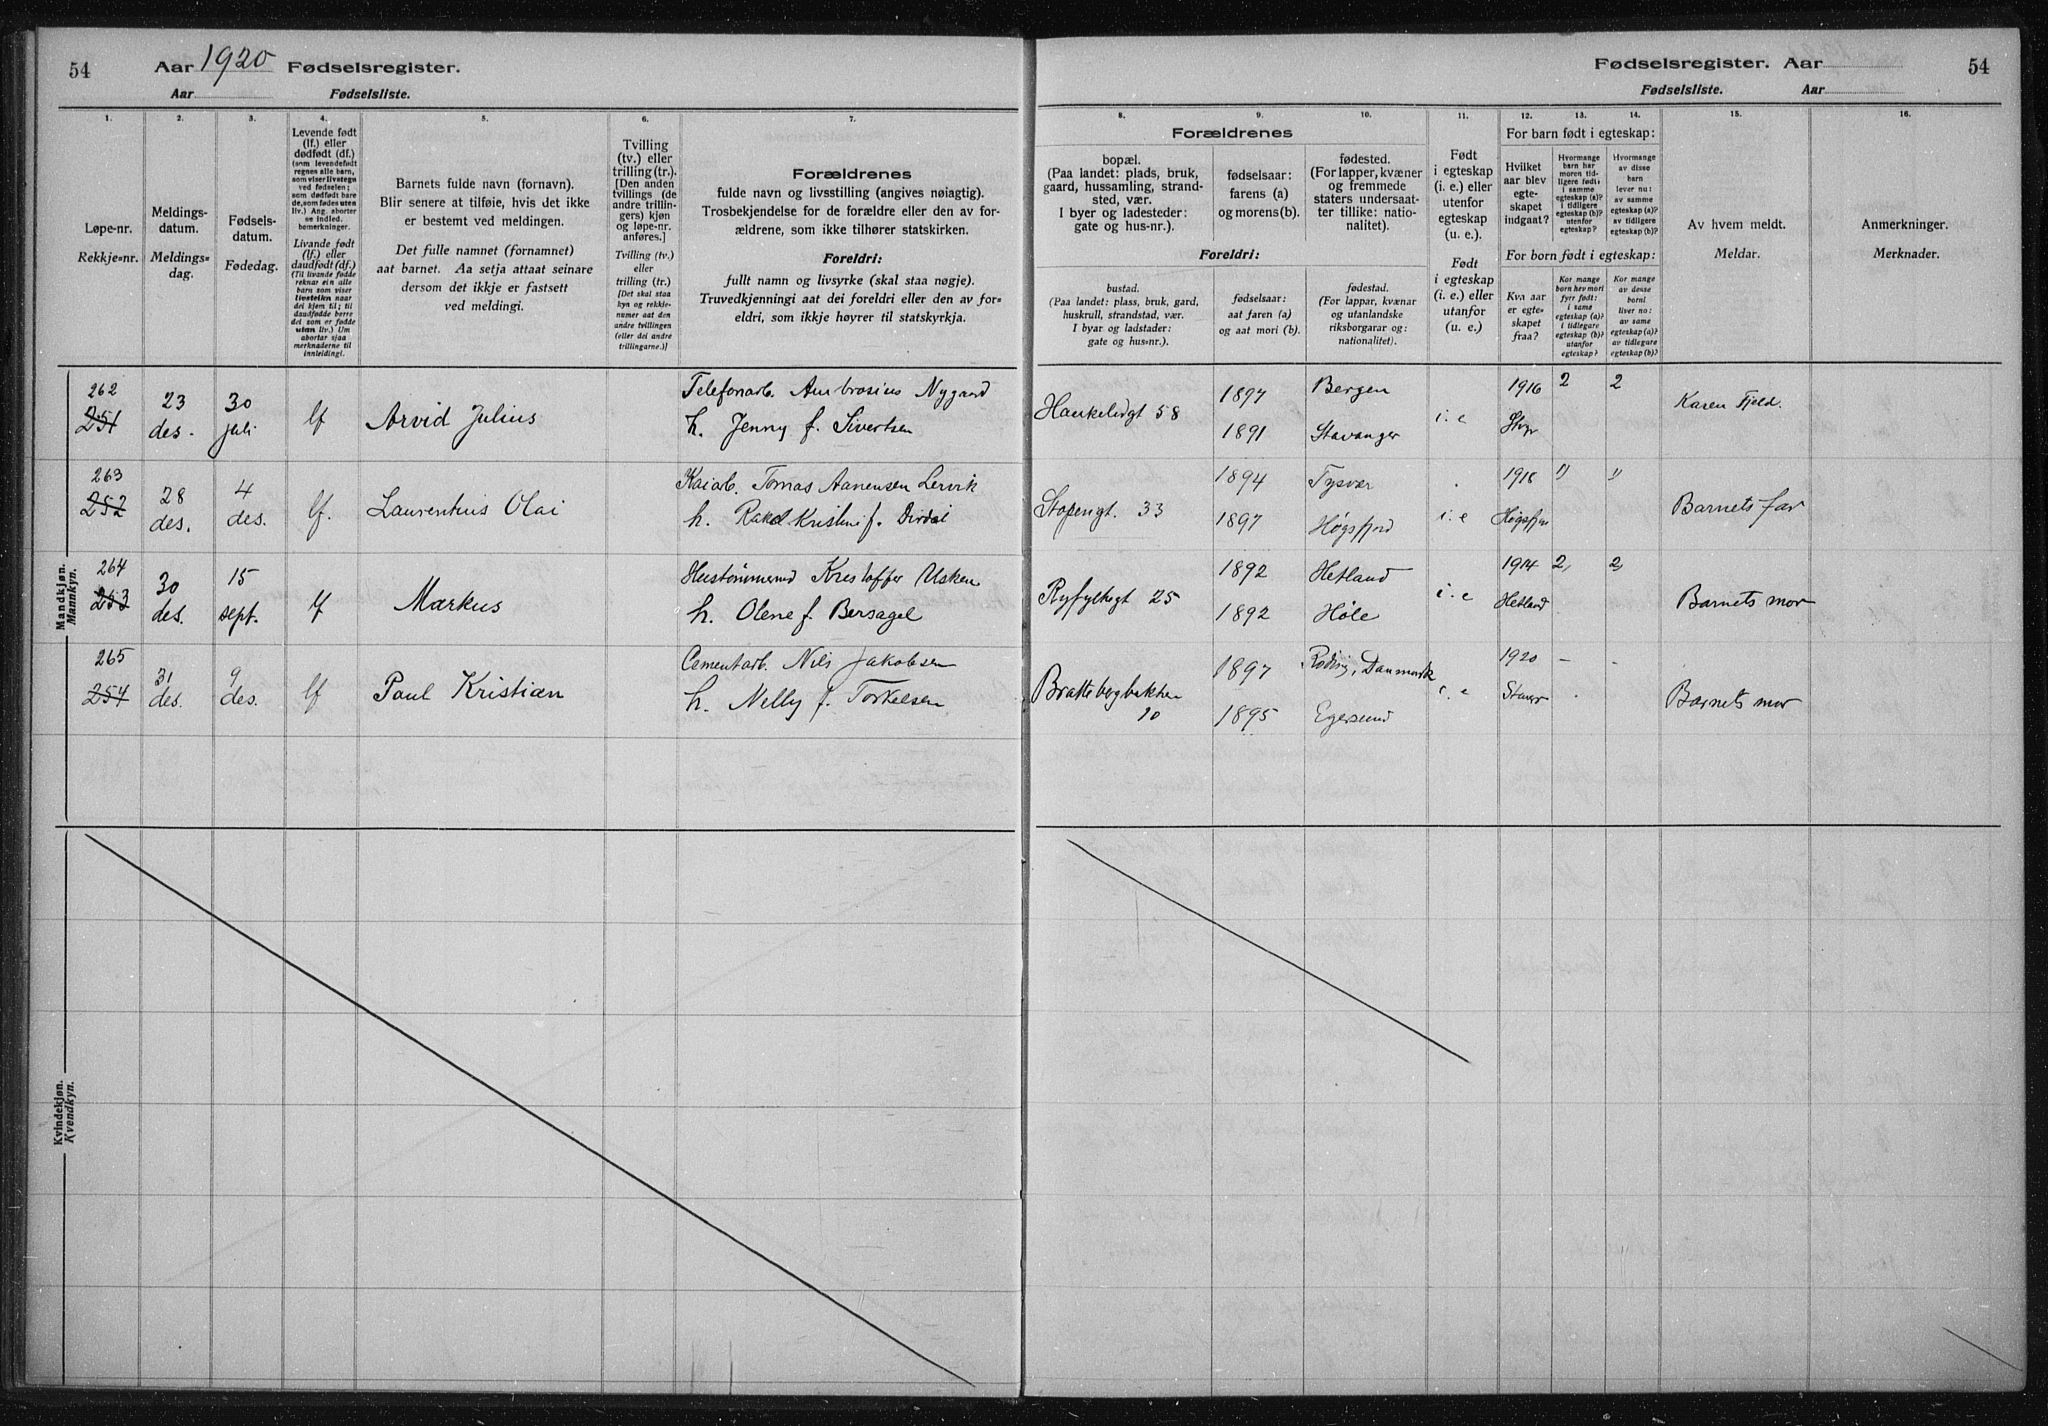 54 Aar 1920 Fødselsregister.
Aar Fødselsliste.
Fødselsregister. Aar 54
Fødselsliste. Aar
1. 2. 3. 4. 5. 6. 7.
8. 9. 10. 11. 12. 13. 14. 15. 16.
Løpe-nr.
Rekkje=nr.
Meldings-
datum.
Meldings=
dag.
Fødsels-
datum.
Fødedag.
Levende født
(lf.) eller
dødfødt (df.)
(som levendefødt
regnes alle barn,
som viser livstegn
ved fødselen;
som dødfødt bare
de, som fødes uten
liv.) Ang. aborter
se indled.
bemerkninger.
Livande født
(lf.) eller
daudfødt (df.)
(Til livande fødde
reknar ein alle
barn som viser
livsteikn naar
dei kjem til; til
daudfødde berre
dei som er fødde
utan liv.) Um
abortar sjaa
merknaderne til
innleidingi.
Barnets fulde navn (fornavn).
Blir senere at tilføie, hvis det ikke
er bestemt ved meldingen.
Det fulle namnet (fornamnet)
aat barnet. Aa setja attaat seinare
dersom det ikkje er fastsett
ved meldingi.
Tvilling
(tv.) eller
trilling (tr.).
[Den anden
tvillings (de
andre trillin-
gers) kjøn
og løpe-nr.
anføres.]
Tvilling (tv.)
eller
trilling (tr.)
[Det skal staa
kyn og rekkje-
numer aat den
andre tvillingen
(eller dei andre
trillingarne.)]
Forældrenes
fulde navn og livsstilling (angives nøiagtig).
Trosbekjendelse for de forældre eller den av for-
ældrene, som ikke tilhører statskirken.
Foreldri:
fullt namn og livsyrke (skal staa nøgje).
Truvedkjenningi aat dei foreldri eller den av for=
eldri, som ikkje høyrer til statskyrkja.
Forældrenes
bopæl.
(Paa landet: plads, bruk,
gaard, hussamling, strand-
sted, vær.
I byer og ladesteder:
gate og hus-nr.).
fødselsaar:
farens (a)
og morens (b).
fødested.
(For lapper, kvæner
og fremmede
staters undersaat-
ter tillike: natio-
nalitet).
Foreldri:
bustad.
(Paa landet: plass, bruk, gard,
huskrull, strandstad, vær.
I byar og ladstader:
gate og hus=nr.).
fødselsaar:
aat faren (a)
og aat mori (b).
fødestad.
(For lappar, kvænar
og utanlandske
riksborgarar og:
nationalitet).
Født
i egteskap
(i. e.) eller
utenfor
egteskap
(u. e.).
Født
i egteskap
(i. e.) eller
utanfor
(u. e.)
For barn født i egteskap:
Hvilket
aar blev
egte-
skapet
indgaat?
Hvormange
barn har
moren tid-
ligere født:
i samme
egteskap (a)?
i tidligere
egteskap (b)?
utenfor
egteskap?
Hvormange
av disse
barn
lever nu:
av samme
egteskap (a)?
av tidligere
egteskap (b)?
For born født i egteskap:
Kva aar
er egte=
skapet
fraa?
Kor mange
born hev mori
fyrr født:
i same
egteskap (a)?
i tidlegare
egteskap (b)?
utanfor
egteskap?
Kor mange
av desse
borni
liver no:
av same
egteskap (a)?
av tidlegare
egteskap (b)?
Av hvem meldt.
Meldar.
Anmerkninger.
Merknader.
Mandkjøn.
Mannkyn.
262 Telefonarb. Ambrosius Nygaard 1897 Bergen 1916 2 2
251 23 des. 30 juli lf Arvid Julius h. Jenny f. Sivertsen Haukeligt 58 1891 Stavanger i. e Karen Fjeld.
263 Kaiarb. Tomas Aanensen Lervik 1894 Tysvær 1918 " "
252 28 des. 4 des. lf. Laurentius Olai h. Rakel Kristine f. Dirdal 33 1897 Høgsfjord i. e Barnets far
264 Kristoffer Usken 1892 Hetland 1914 2 2
253 30 des. 15 sept. lf Markus h. Olene f. Bersagel Ryfylkegt 25 1892 Høle i. e Hetland Barnets mor
265 Cementarb. Nils Jakobsen 1897 Rødvig, Danmark 1920 - -
254 31 des. 9 des. lf Paul Kristian h. Nelly f. Torkelsen Brattebergbakken 10 1895 Egersund i. e Barnets mor
Kvindekjøn.
Kvendkyn.